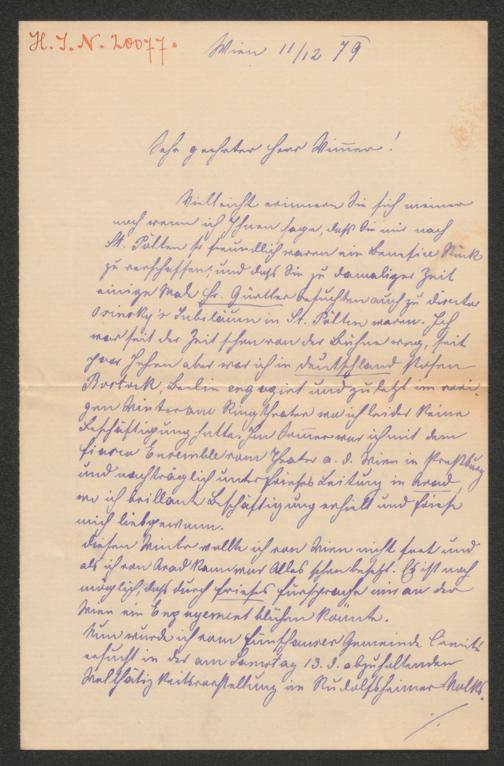 H. I. N. 20077.
Wien 11/12 79
Sehr geehrter Herr Wimmer!
Vielleicht erinnern Sie sich meiner
noch wenn ich Ihnen sage, daß Sie mir nach
St. Pölten so freundlich waren ein Benefice Stück
zu verschaffen, und daß Sie zu damaliger Zeit
einige Mal Fr. Gürtler besuchten auch zu Director
Jubiläum in St. Pölten waren. Ich
war seit der Zeit schon von der Bühne weg, seit
paar Jahren aber war ich in Deutschland Posen
Rostock, Berlin engagirt und zuletzt im vori-
gen Winter am Ringtheater wo ich leider keine
Beschäftigung hatte. Im Sommer war ich mit dem
Ensemble vom Theater a. d. Wien in Preßburg
und nachträglich unter Frieses Leitung in Arad,
wo ich brillante Beschäftigung erhielt und Friese
mich liebgewann.
Diesen Winter wollte ich von Wien nicht fort und
als ich von Arad kam war Alles schon besetzt. Es ist noch
möglich, daß durch Frieses Fürsprache mir an der
Wien ein Engagement blühen könnte.
Nun wurde ich vom Fünfhauser Gemeinde Comité
ersucht in der am Samstag 13. d. abzuhaltenden
Wohlthätigkeitsvorstellung im Rudolfsheimer Volks-